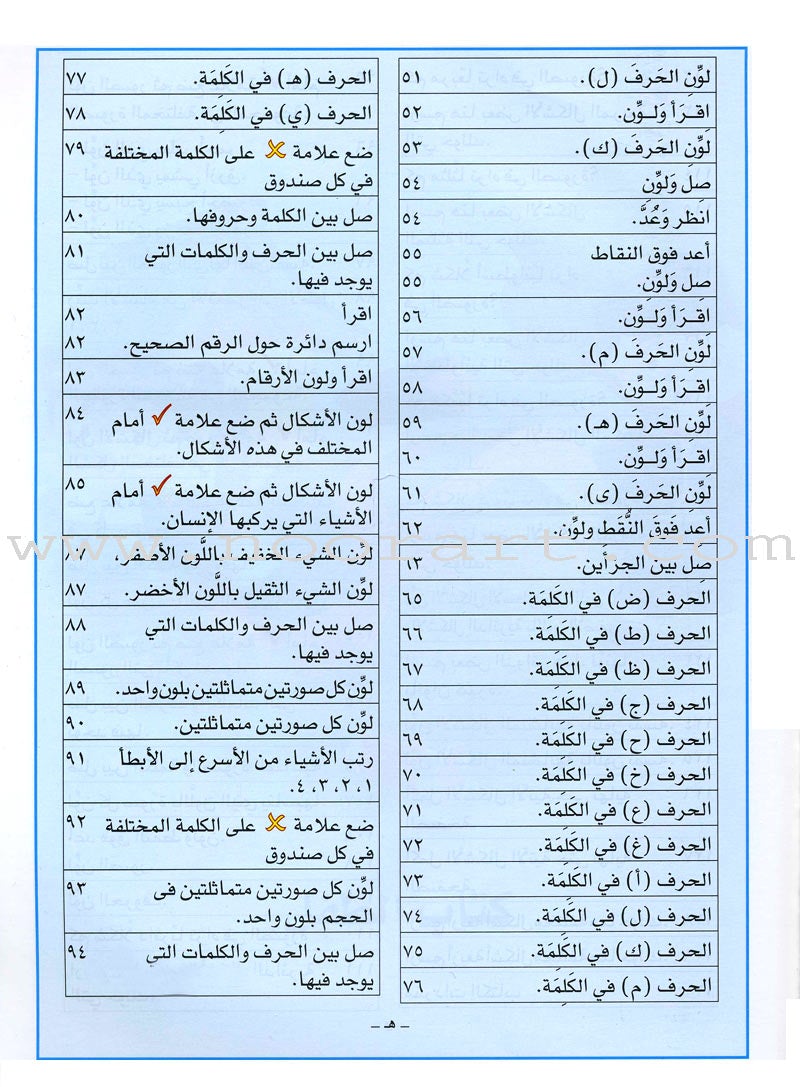 لوِّن الحَرفَ (ل). ٥١
اقــرَأ وَلــوِّن. ٥٢
لَوِّنِ الحَرفَ (ك). ٥٣
صل وَلوِّنِ ٥٤
انظر وَعُدَّ. ٥٤
أعد فوق النقاط ٥٥
صل ولوِّنِ. ٥٥
اقــرَأ وَلــوِّن. ٥٦
لَوِّنِ الحَرفَ (م). ٥٧
اقــرَأ وَلــوِّن. ٥٨
لَوِّنِ الحَرفَ (هـ). ٥٩
اقــرَأ وَلــوِّن. ٦٠
لَوِّنِ الحَرفَ (ى). ٦١
أعد فَوقَ النُّقَط ولوِّن. ٦٢
صِل بين الجزأين. ٦٣
الحرف (ض) في الكَلِمَة. ٦٥
الحرف (ط) في الكَلِمَة. ٦٦
الحرف (ظ) في الكَلِمَة. ٦٧
الحرف (ج) في الكَلِمَة. ٦٨
الحرف (ح) في الكَلِمَة. ٦٩
الحرف (خ) في الكَلِمَة. ٧٠
الحرف (ع) في الكَلِمَة. ٧١
الحرف (غ) في الكَلِمَة. ٧٢
الحرف (أ) في الكَلِمَة. ٧٣
الحرف (ل) في الكَلِمَة. ٧٤
الحرف (ك) في الكَلِمَة. ٧٥
الحرف (م) في الكَلِمَة. ٧٦
الحرف (هـ) في الكَلِمَة. ٧٧
الحرف (ي) في الكَلِمَة. ٧٨
ضع علامة ✗ على الكلمة المختلفة ٧٩
في كل صندوق
صل بين الكلمة وحروفها. ٨٠
صل بين الحرف والكلمات التي ٨١
يوجد فيها.
اقرأ ٨٢
ارسم دائرة حول الرقم الصحيح. ٨٢
اقرأ ولون الأرقام. ٨٣
لون الأشكال ثم ضع علامة ✓ أمام ٨٤
المختلف في هذه الأشكال.
لون الأشكال ثم ضع علامة ✓ أمام ٨٥
الأشياء التي يركبها الإنسان.
لوِّن الشيء الخفيف باللَّون الأصفر.
لوِّن الشيء الثقيل باللَّون الأخضر. ٨٧
صل بين الحرف والكلمات التي ٨٨
يوجد فيها.
لوِّن كل صورتين متماثلتين بلون واحد. ٨٩
لوِّن كل صورتين متماثلتين. ٩٠
رتب الأشياء من الأسرع إلى الأبطأ ٩١
١، ٢، ٣، ٤.
ضع علامة ✗ على الكلمة المختلفة ٩٢
في كل صندوق
لوِّن كل صورتين متماثلتين فى ٩٣
الحجم بلون واحد.
صل بين الحرف والكلمات التي ٩٤
يوجد فيها.
www.noorart.com
– هـ –